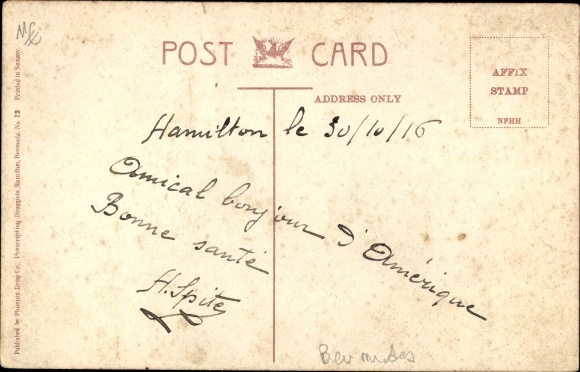 POST CARD
ADDRESS ONLY
AFFIX
STAMP
NFHH
Hamilton le 30/10/16
Amical bonjour d'Amérique
Bonne santé
H. Spite
Bermudes
Published by Phoenix Drug Co., Prescription Druggists, Hamilton, Bermuda. No. 12 Printed in Saxony.